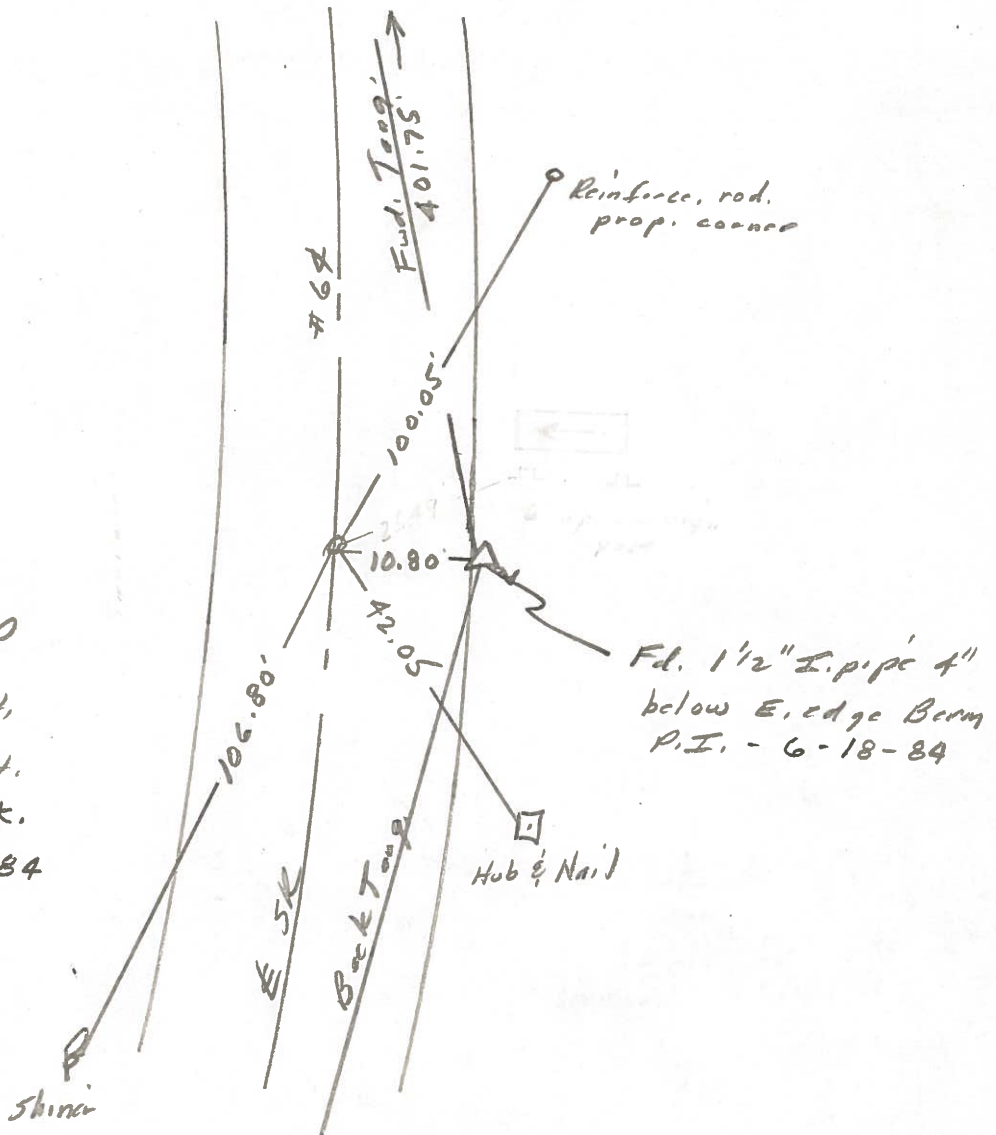 Fwd. Tang.
401.75'
Reinforc. rod.
prop. corner
# 64
100.05'
10.80'
42.05
Fd. 1 1/2" I. pipe 4"
below E. edge Berm
P.I. - 6-18-84
106.80'
84
Hub & Nail
Back Tang
℄ SR
Shiner